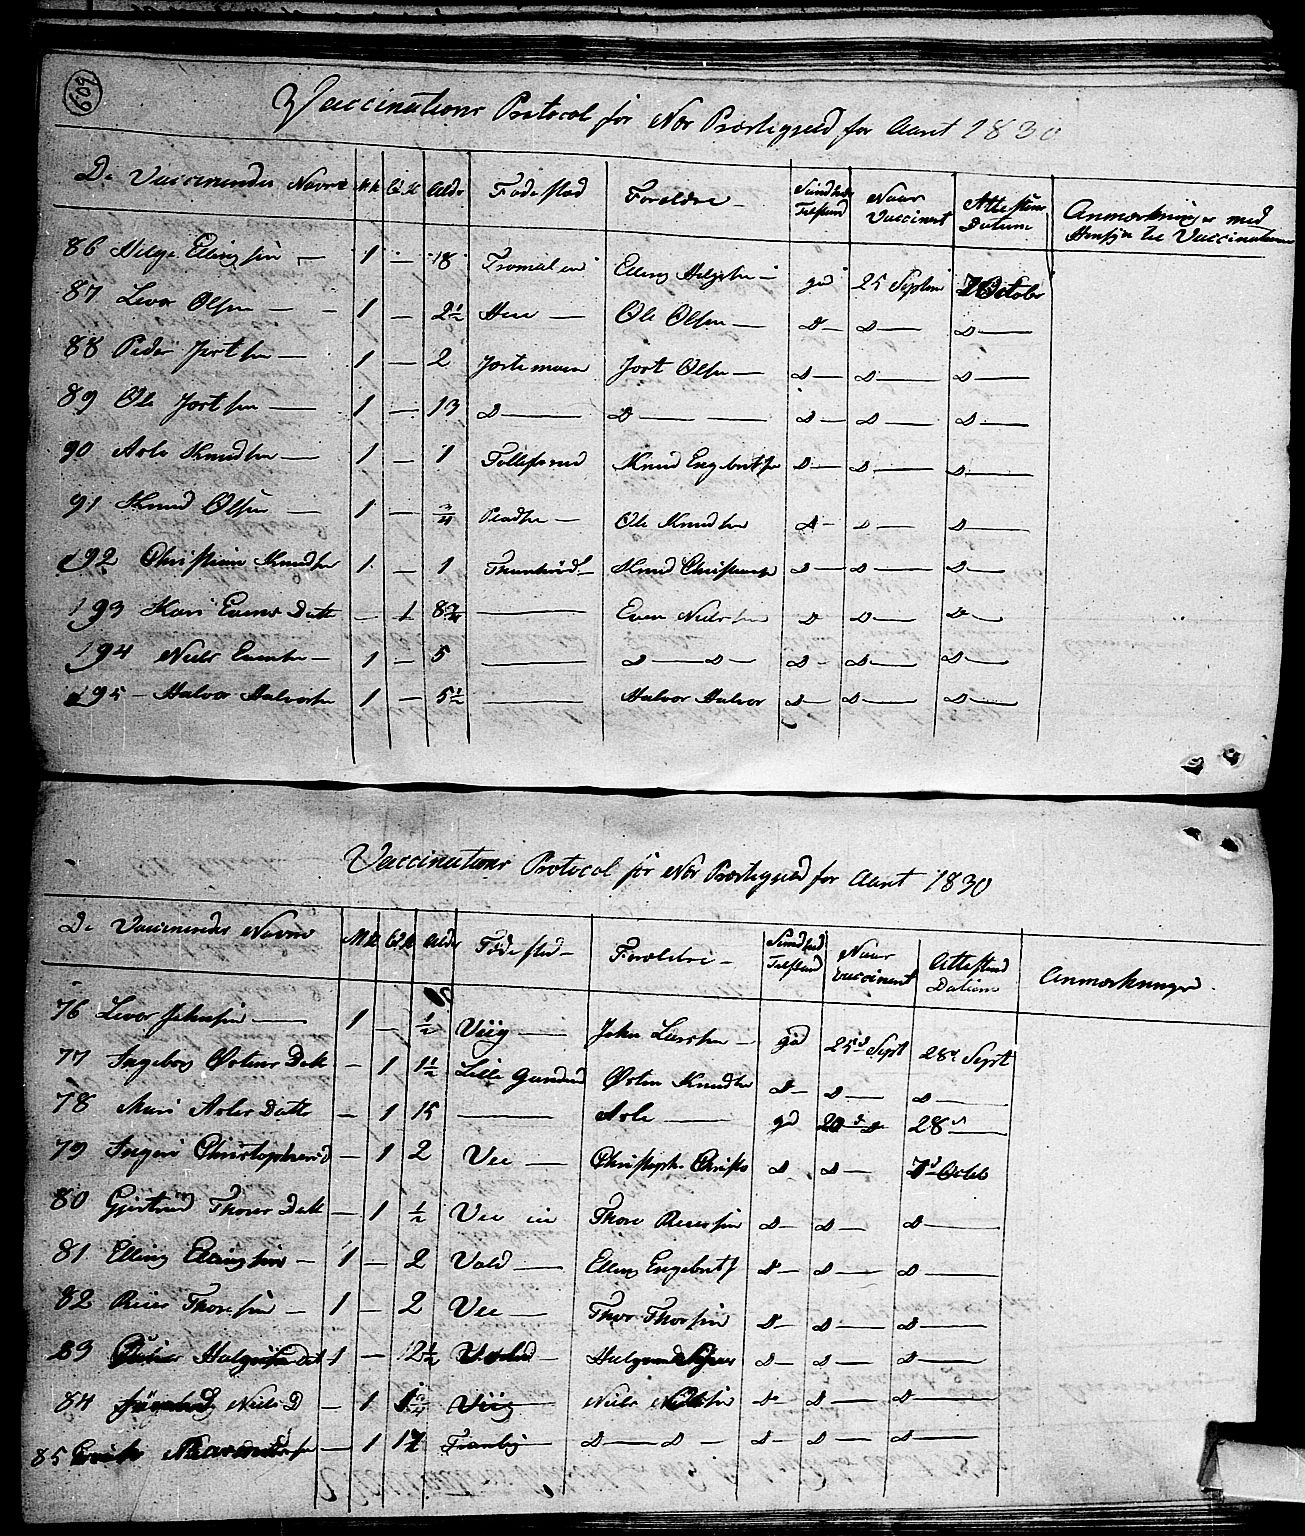 609
Vaccinations Protocol for Nor Præstigield for Aaret 1830
De Vaccineredes Navne M.k Qd.k Alder Fødested Forældre Sundheds Tilstand Naar Vaccineret Attestens Datum Anmærkninger med Hensyn til Vaccinationen
86 Helge Ellingsen 1 — 18 Elling Helgesen god 25 Septem 7 October
87 Levor Olsen — 1 — 2½ Ole Olsen — D — D — D —
88 Peder Jortsen — 1 — 2 Jortemoen Jort Olsen — D — D — D —
89 Ole Jortsen — 1 — 13 D — D — D — D — D —
90 Asle Knudsen — 1 — 1 Tollefsrud Knud Engebretsen D — D — D —
91 Knud Olsen — 1 — ¾ Ole Knudsen D — D — D —
92 Christian Knudsen 1 — 1 Knud Christiansen D — D — D —
193 Kari Evens Datt — 1 8¾ — Even Nielsen D D — D —
194 Niels Evensen — 1 — 5 — D — D — D — D — D —
195 — Halvor Halvorsen 1 — 5½ — Halvor Halvor D — D — D —
Vaccinations Protocol for Nor Præstigield for Aaret 1830
De Vaccinerendes Navne M.k Qd.k Alder Fødested — Forældre — Sundhed Tilstand Naar vaccineret Attestens Datum Anmærkninger
76 Levor Johnsen — 1 — ½ Viig — John Larsen — god 25d Sept 28d Sept
77 Ingebor Østens Datt — 1 1½ Lille Østen Knudsen D — D — D —
78 Mari Asles Datte — 1 15 — Asle — god 28d —
79 Ingeri Christophersd — 1 2 Vee — Christoph. Christo D D — 7d Octob
80 Gjertrud Thores Datt — 1 ½ Vee Thore Reiersen D — D — D —
81 Elling Ellingsen — 1 — 2 Vold — Elling Engebrets D — D — D —
82 Reier Thoresen — 1 — 2 Vee — Thor Thorsen D — D — D —
83 1 — 2½ D — D — D —
84 Niels D — 1 Viig Niels Nielsen D — D — D —
85 — 1 17 D — D — D — D — D —